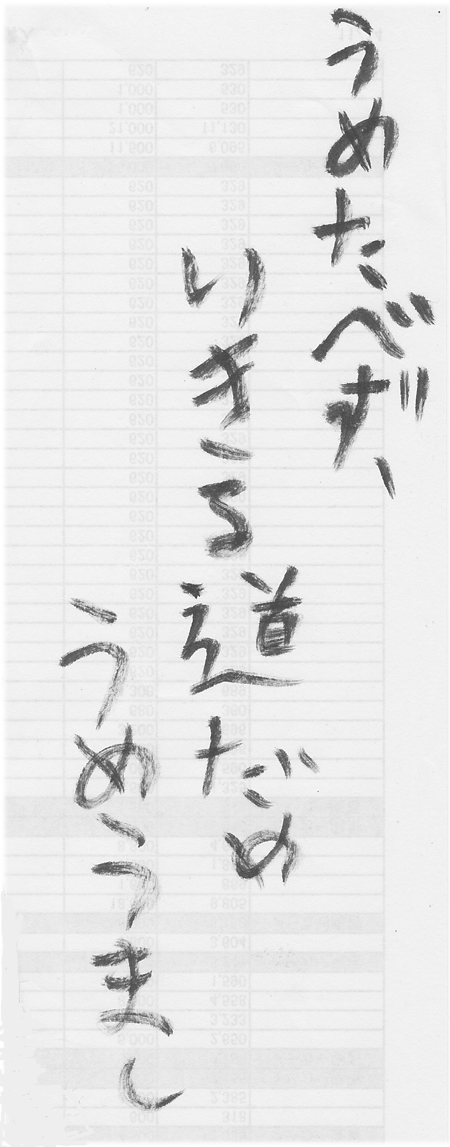 うめたべず、
いきる道だめ
うめうまし